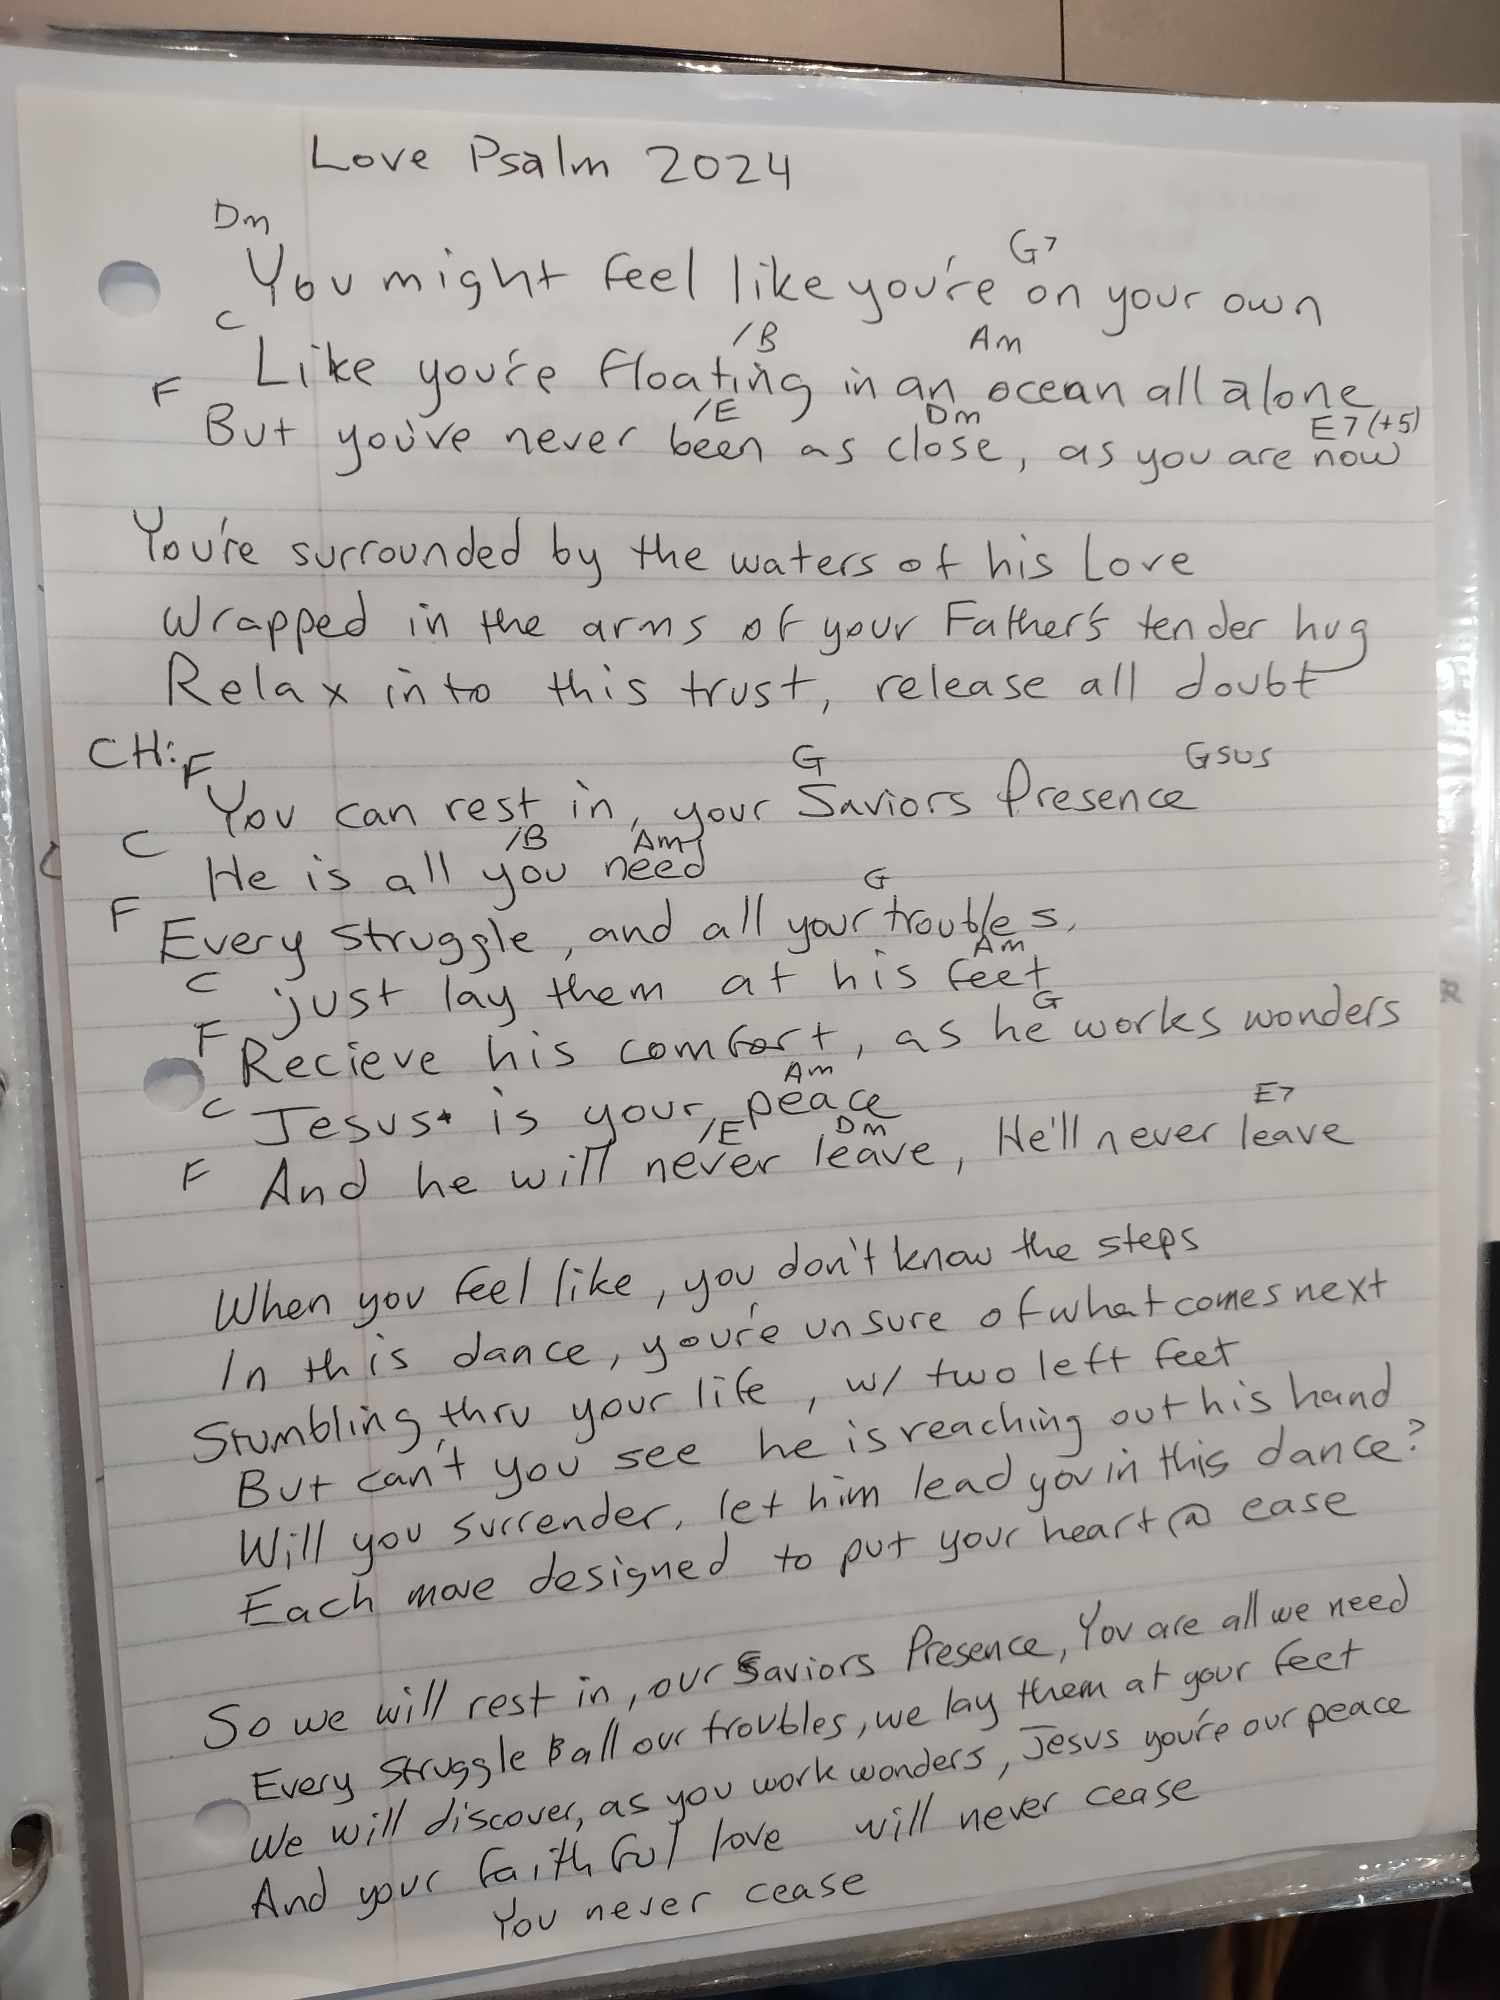 Love Psalm 2024
Dm G7
You might feel like you're on your own
C /B Am
Like you're floating in an ocean all alone
F /E Dm E7(+5)
But you've never been as close, as you are now
You're surrounded by the waters of his Love
Wrapped in the arms of your Father's tender hug
Relax into this trust, release all doubt
CH: F G Gsus
You can rest in, your Saviors Presence
C /B Am
He is all you need
F G
Every struggle, and all your troubles,
C Am
just lay them at his feet
F G
Recieve his comfort, as he works wonders
C Am
Jesus is your peace
F /E Dm E7
And he will never leave, He'll never leave
When you feel like, you don't know the steps
In this dance, you're unsure of what comes next
Stumbling thru your life, w/ two left feet
But can't you see he is reaching out his hand
Will you surrender, let him lead you in this dance?
Each move designed to put your heart @ ease
So we will rest in, our Saviors Presence, You are all we need
Every struggle & all our troubles, we lay them at your feet
We will discover, as you work wonders, Jesus you're our peace
And your faithful love will never cease
You never cease